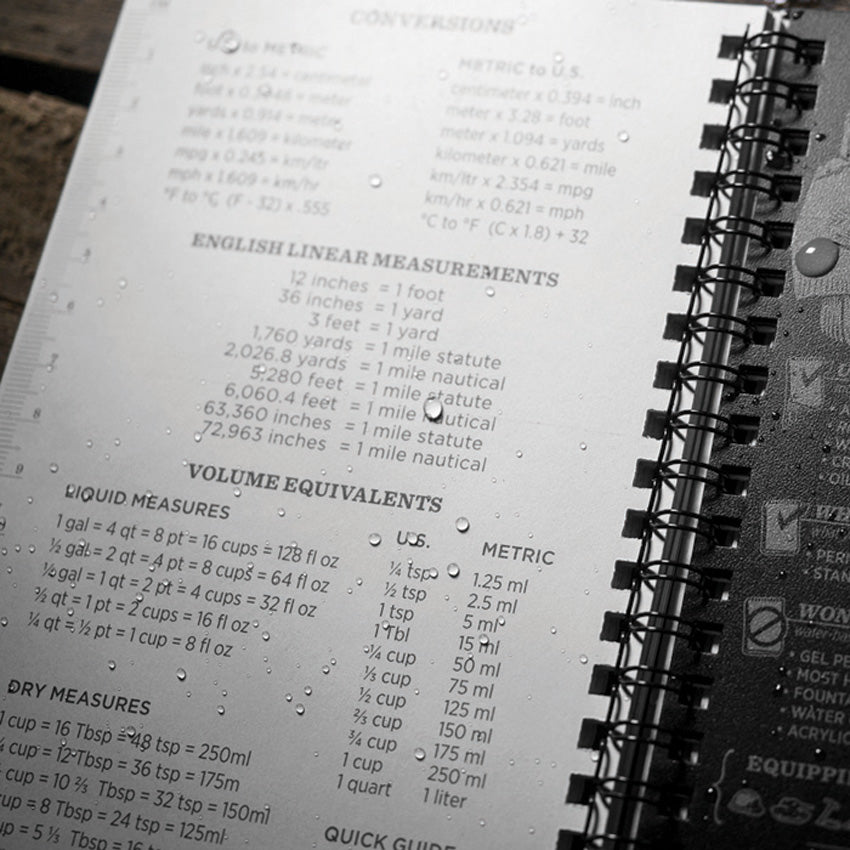 CONVERSIONS
U.S. to METRIC
inch x 2.54 = centimeter
foot x 0.3048 = meter
yards x 0.914 = meter
mile x 1.609 = kilometer
mpg x 0.245 = km/ltr
mph x 1.609 = km/hr
°F to °C (F - 32) x .555
METRIC to U.S.
centimeter x 0.394 = inch
meter x 3.28 = foot
meter x 1.094 = yards
kilometer x 0.621 = mile
km/ltr x 2.354 = mpg
km/hr x 0.621 = mph
°C to °F (C x 1.8) + 32
ENGLISH LINEAR MEASUREMENTS
12 inches = 1 foot
36 inches = 1 yard
3 feet = 1 yard
1,760 yards = 1 mile statute
2,026.8 yards = 1 mile nautical
5,280 feet = 1 mile statute
6,060.4 feet = 1 mile nautical
63,360 inches = 1 mile statute
72,963 inches = 1 mile nautical
VOLUME EQUIVALENTS
LIQUID MEASURES
1 gal = 4 qt = 8 pt = 16 cups = 128 fl oz
½ gal = 2 qt = 4 pt = 8 cups = 64 fl oz
¼ gal = 1 qt = 2 pt = 4 cups = 32 fl oz
½ qt = 1 pt = 2 cups = 16 fl oz
¼ qt = ½ pt = 1 cup = 8 fl oz
U.S. METRIC
¼ tsp 1.25 ml
½ tsp 2.5 ml
1 tsp 5 ml
1 Tbl 15 ml
¼ cup 50 ml
⅓ cup 75 ml
½ cup 125 ml
⅔ cup 150 ml
¾ cup 175 ml
1 cup 250 ml
1 quart 1 liter
DRY MEASURES
1 cup = 16 Tbsp = 48 tsp = 250ml
cup = 12 Tbsp = 36 tsp = 175m
cup = 10 ⅔ Tbsp = 32 tsp = 150ml
cup = 8 Tbsp = 24 tsp = 125ml
= 5 ⅓ Tbsp = 16
QUICK GUIDE
1
2
3
4
5
6
7
8
9
• GEL
• MOST
• WATER